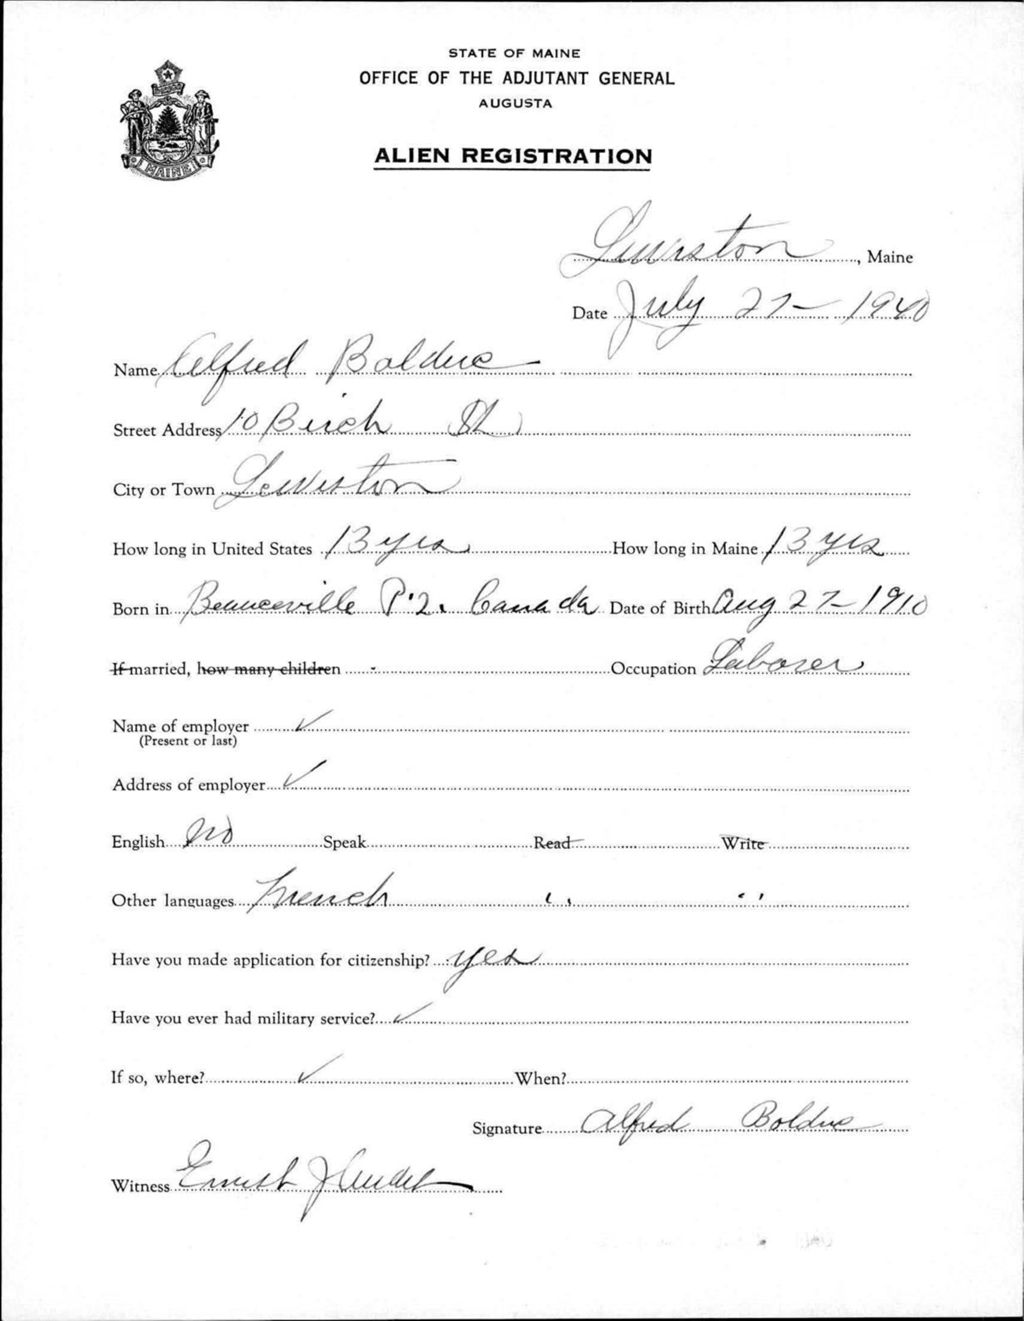 STATE OF MAINE
OFFICE OF THE ADJUTANT GENERAL
AUGUSTA
ALIEN REGISTRATION
MAINE
Lewiston, Maine
Date July 27 - 1940
Name Alfred Bolduc
Street Address 10 Birch St
City or Town Lewiston
How long in United States 13 yrs How long in Maine 13 yrs
Born in Beauceville P.Q. Canada Date of Birth Aug 27 - 1910
If married, how many children - Occupation Laborer
Name of employer ✓
(Present or last)
Address of employer ✓
English No Speak Read Write
Other languages French " "
Have you made application for citizenship? yes
Have you ever had military service? ✓
If so, where? ✓ When?
Signature Alfred Bolduc
Witness Ernest J